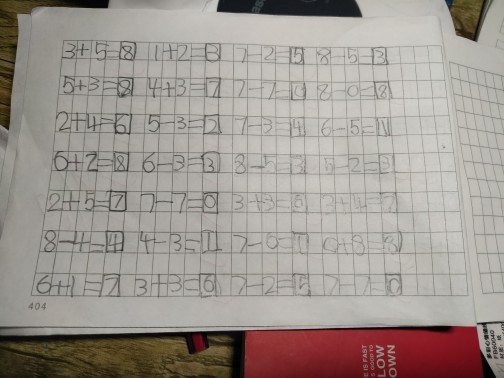 3+5=8 1+2=3 7-2=5 8-5=3
5+3=8 4+3=7 7-7=0 8-0=8
2+4=6 5-3=2 7-3=4 6-5=1
6+2=8 6-3=3 8-5=3 5-2=3
2+5=7 7-7=0 3+3=6 3+4=7
8-4=4 4-3=1 0+8=8
6+1=7 3+3=6 7-2=5 7-7=0
404
E IS FAST
LOW
OWN